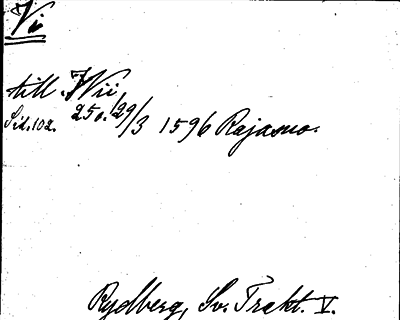 Vi
till Wii
Sid. 102. 250. 29/3 1596 Rajasuo.
Rydberg, Sv. Trakt. V.